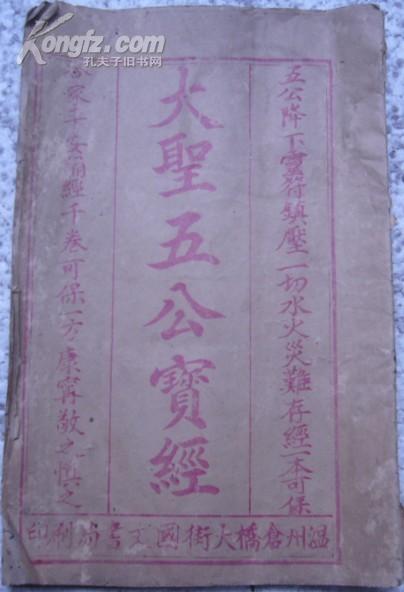 Kongfz.com
孔夫子旧书网
五公降下靈符鎮壓一切水火災難存經一本可保
大聖五公寶經
家平安有經千卷可保一方康寧敬之慎之
温州倉橋大街國文書局刷印